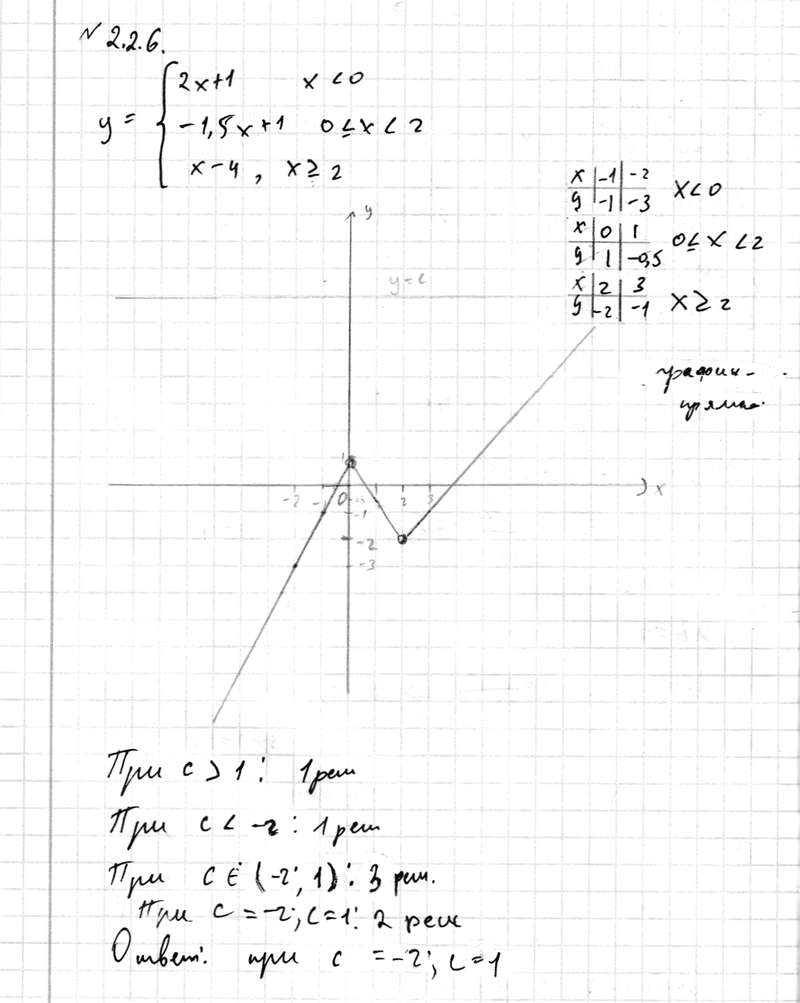 N 2.2.6.
y = { 2x+1 x < 0
-1,5x+1 0 ≤ x < 2
x-4, x ≥ 2
x | -1 | -2
y | -1 | -3 x < 0
x | 0 | 1
y | 1 | -0,5 0 ≤ x < 2
x | 2 | 3
y | -2 | -1 x ≥ 2
y
y = c
график -
прямая
1
-2 -1 0 2 3 x
-1
-2
-3
При c > 1: 1 реш
При c < -2: 1 реш
При c ∈ (-2; 1): 3 реш.
При c = -2; c = 1: 2 реш
Ответ: при c = -2; c = 1